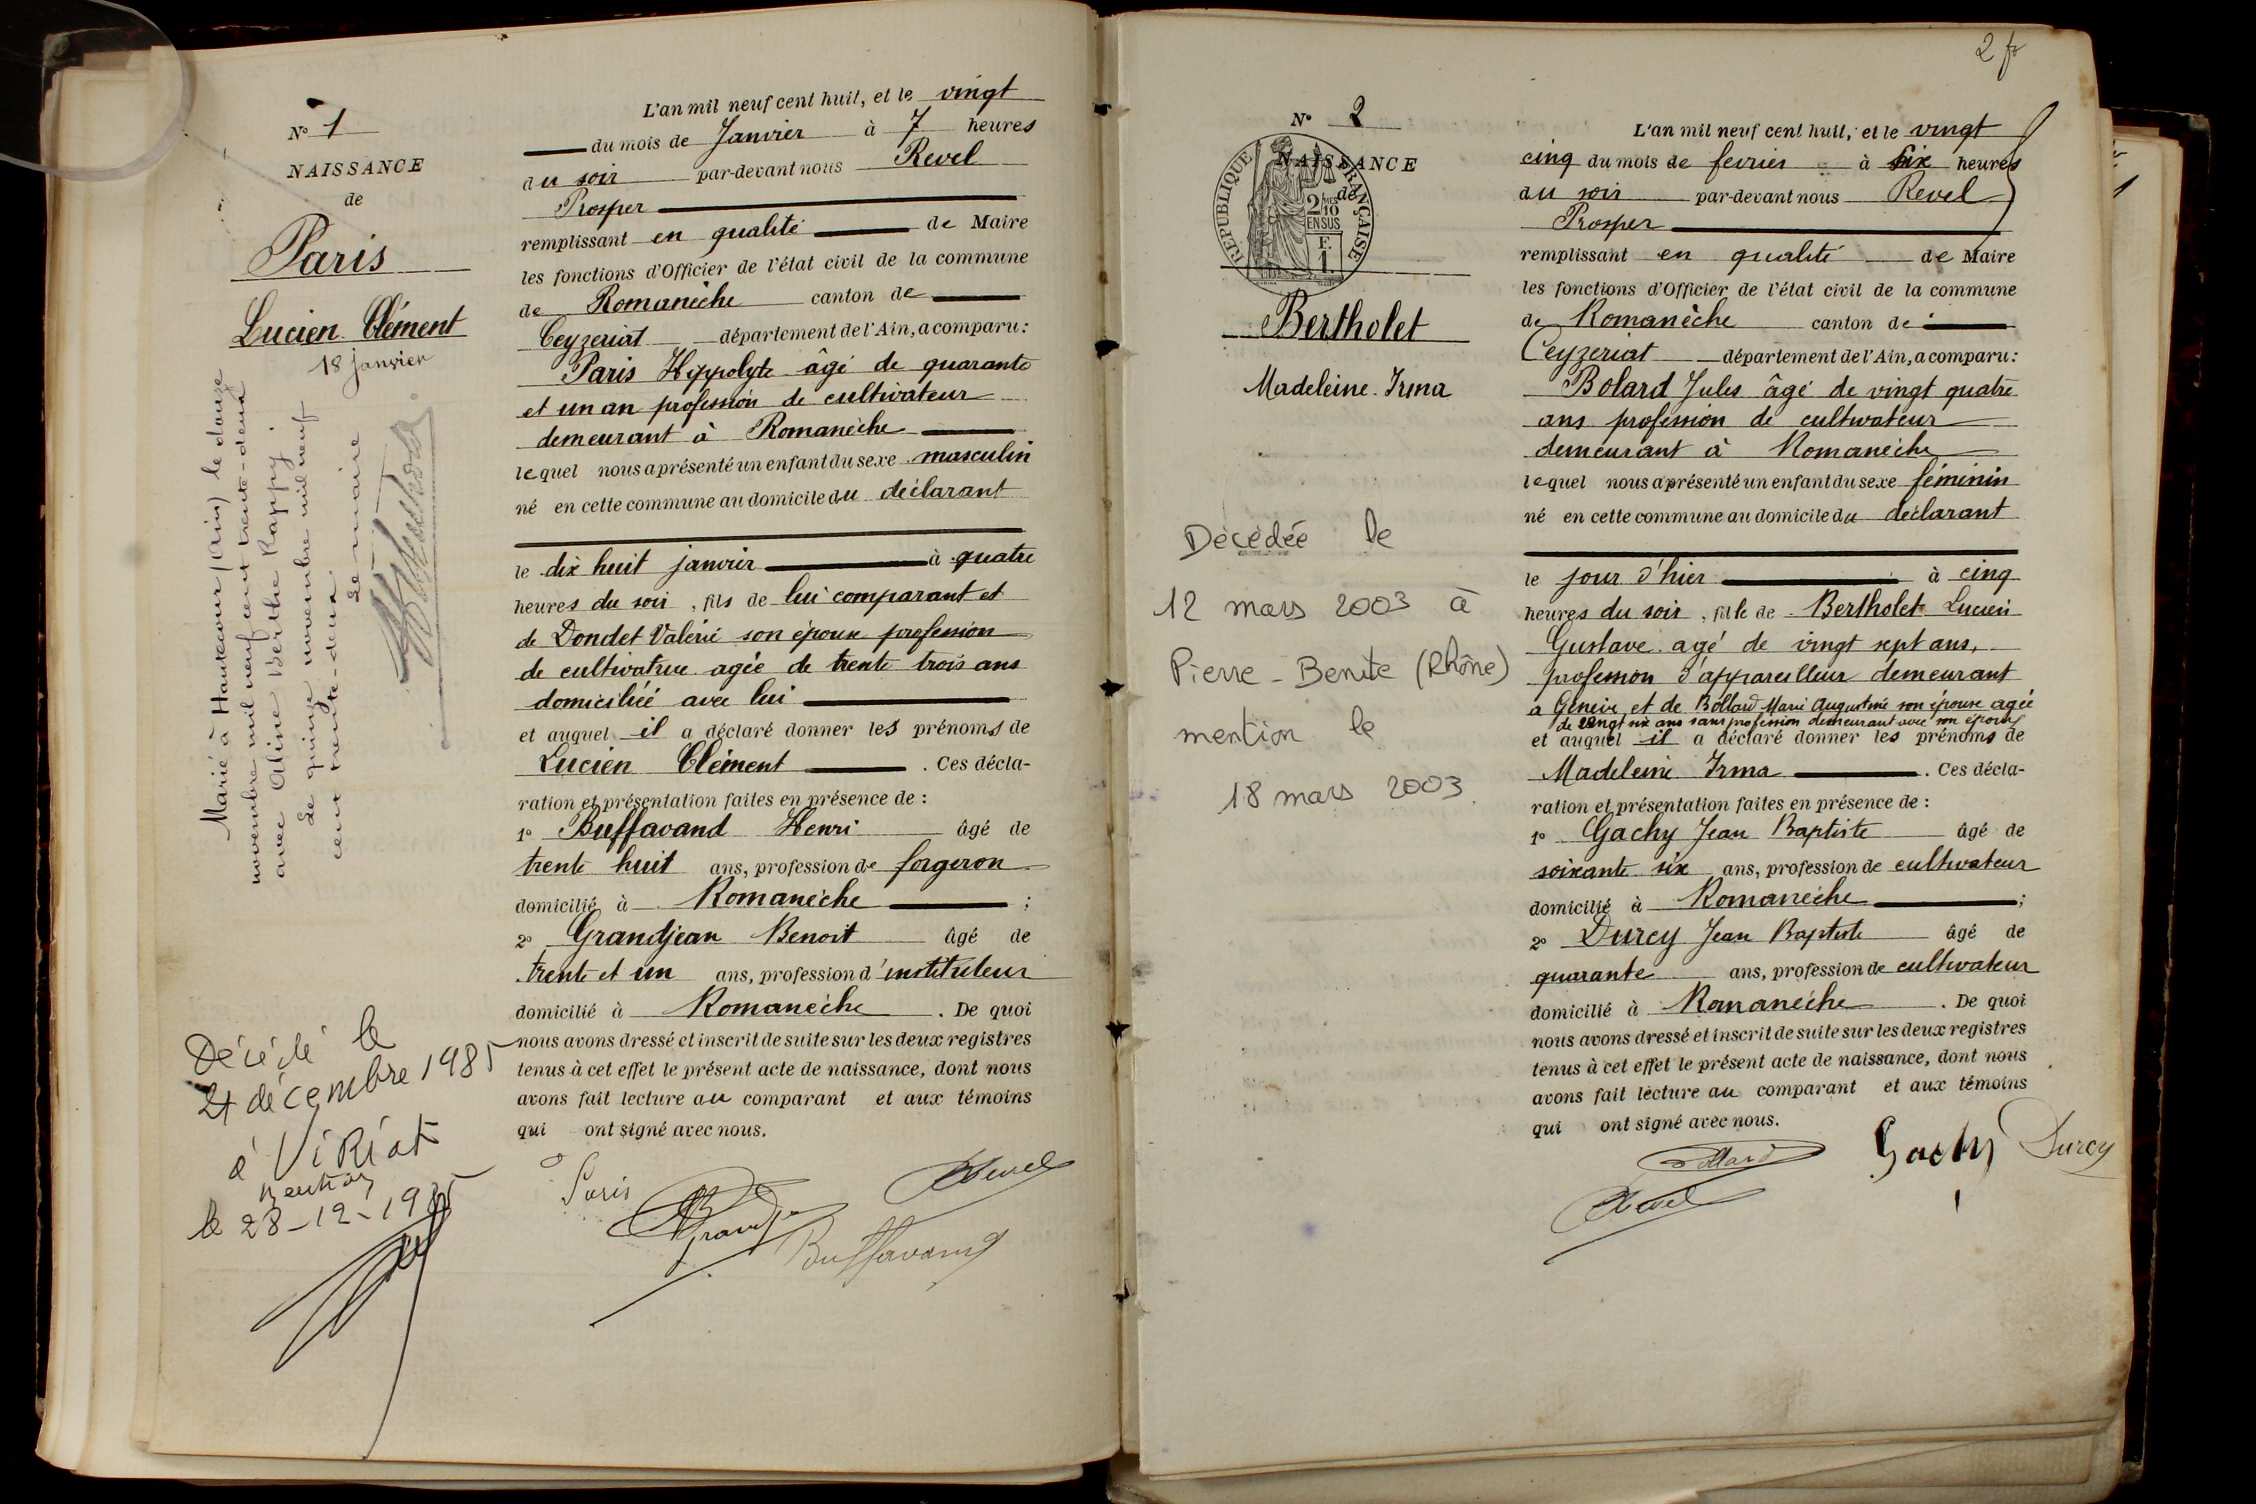 N° 1
NAISSANCE
de
Paris
Lucien Clément
18 janvier
Marié à Hautecour (Ain) le douze
novembre mil neuf cent trente-deux
avec Aline Berthe Rappy.
Le quinze novembre mil neuf
cent trente-deux.
Le maire
Décédé le
décembre 1985
à Viriat
mention
le 28-12-1985
L'an mil neuf cent huit, et le vingt
du mois de Janvier à 7 heures
du soir par-devant nous Revel
Prosper
remplissant en qualité de Maire
les fonctions d'Officier de l'état civil de la commune
de Romanèche canton de
Ceyzeriat département de l'Ain, a comparu :
Paris Hippolyte âgé de quarante
et un an profession de cultivateur
demeurant à Romanèche
lequel nous a présenté un enfant du sexe masculin
né en cette commune au domicile du déclarant
le dix huit janvier à quatre
heures du soir, fils de lui comparant et
de Dondet Valérie son épouse profession
de cultivatrice agée de trente trois ans
domiciliée avec lui
et auquel il a déclaré donner les prénoms de
Lucien Clément . Ces décla-
ration et présentation faites en présence de :
1° Buffavand Henri âgé de
trente huit ans, profession de forgeron
domicilié à Romanèche ;
2° Grandjean Benoit âgé de
trente et un ans, profession d'instituteur
domicilié à Romanèche . De quoi
nous avons dressé et inscrit de suite sur les deux registres
tenus à cet effet le présent acte de naissance, dont nous
avons fait lecture au comparant et aux témoins
qui ont signé avec nous.
Paris Revel
Grandjean
Buffavand
2 fo
N° 2
NAISSANCE
de
REPUBLIQUE FRANÇAISE
2/10 EN SUS
F. 1.
Bertholet
Madeleine Irma
Décédée le
12 mars 2003 à
Pierre-Bénite (Rhône)
mention le
18 mars 2003
L'an mil neuf cent huit, et le vingt
cinq du mois de fevrier à six heures
du soir par-devant nous Revel
Prosper
remplissant en qualité de Maire
les fonctions d'Officier de l'état civil de la commune
de Romanèche canton de
Ceyzeriat département de l'Ain, a comparu :
Bolard Jules âgé de vingt quatre
ans profession de cultivateur
demeurant à Romanèche
lequel nous a présenté un enfant du sexe féminin
né en cette commune au domicile du déclarant
le jour d'hier à cinq
heures du soir, fille de Bertholet Lucien
Gustave agé de vingt sept ans,
profession d'appareilleur demeurant
à Genève, et de Bollard Marie Augustine son épouse agée
de vingt six ans sans profession demeurant avec son époux
et auquel il a déclaré donner les prénoms de
Madeleine Irma . Ces décla-
ration et présentation faites en présence de :
1° Gachy Jean Baptiste âgé de
soixante six ans, profession de cultivateur
domicilié à Romanèche ;
2° Durcy Jean Baptiste âgé de
quarante ans, profession de cultivateur
domicilié à Romanèche . De quoi
nous avons dressé et inscrit de suite sur les deux registres
tenus à cet effet le présent acte de naissance, dont nous
avons fait lecture au comparant et aux témoins
qui ont signé avec nous.
Bollard Gachy Durcy
Revel